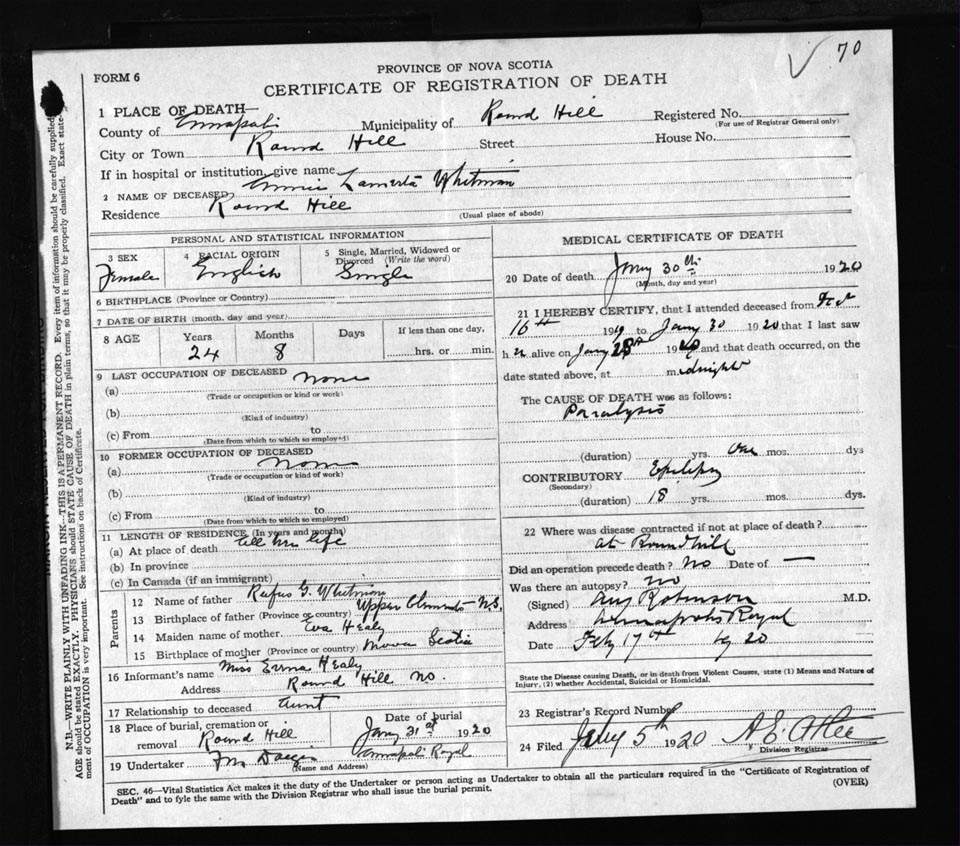 70
FORM 6
PROVINCE OF NOVA SCOTIA
CERTIFICATE OF REGISTRATION OF DEATH
1 PLACE OF DEATH—
County of Annapolis Municipality of Round Hill Registered No.
(For use of Registrar General only)
City or Town Round Hill Street House No.
If in hospital or institution, give name
2 NAME OF DECEASED Whitman
Residence Round Hill
(Usual place of abode)
PERSONAL AND STATISTICAL INFORMATION
3 SEX 4 RACIAL ORIGIN 5 Single, Married, Widowed or Divorced (Write the word)
Female English Single
6 BIRTHPLACE (Province or Country)
7 DATE OF BIRTH (month, day and year)
8 AGE Years Months Days If less than one day,
24 8 hrs. or min.
9 LAST OCCUPATION OF DECEASED none
(a)
(Trade or occupation or kind or work)
(b)
(Kind of industry)
(c) From to
(Date from which to which so employed)
10 FORMER OCCUPATION OF DECEASED
(a) none
(Trade or occupation or kind of work)
(b)
(Kind of industry)
(c) From to
(Date from which to which so employed)
11 LENGTH OF RESIDENCE (In years and months)
(a) At place of death all her life
(b) In province
(c) In Canada (if an immigrant)
Parents
12 Name of father Rufus G. Whitman
13 Birthplace of father (Province or country) Upper Clements N.S.
14 Maiden name of mother Eva Healy
15 Birthplace of mother (Province or country) Nova Scotia
16 Informant's name Miss Healy
Address Round Hill
17 Relationship to deceased aunt
18 Place of burial, cremation or removal Round Hill
Date of burial Jany 31st 1920
19 Undertaker Annapolis Royal
(Name and Address)
MEDICAL CERTIFICATE OF DEATH
20 Date of death Jany 30th 1920
(Month, day and year)
21 I HEREBY CERTIFY, that I attended deceased from
16th 1919 to Jany 30 1920 that I last saw
h er alive on Jany 19 and that death occurred, on the
date stated above, at m. midnight
The CAUSE OF DEATH was as follows:
Paralysis
(duration) yrs. one mos. dys
CONTRIBUTORY Epilepsy
(Secondary)
(duration) 18 yrs. mos. dys.
22 Where was disease contracted if not at place of death?
at Roundhill
Did an operation precede death? No Date of —
Was there an autopsy? no
(Signed) Robinson M.D.
Address Annapolis Royal
Date Feby 17th 1920
State the Disease causing Death, or in death from Violent Causes, state (1) Means and Nature of
Injury, (2) whether Accidental, Suicidal or Homicidal.
23 Registrar's Record Number
24 Filed 5th 1920 A E
Division Registrar
SEC. 46—Vital Statistics Act makes it the duty of the Undertaker or person acting as Undertaker to obtain all the particulars required in the "Certificate of Registration of
Death" and to fyle the same with the Division Registrar who shall issue the burial permit.
(OVER)
N.B.—WRITE PLAINLY WITH UNFADING INK—THIS IS A PERMANENT RECORD. Every item of information should be carefully supplied.
AGE should be stated EXACTLY. PHYSICIANS should STATE CAUSE OF DEATH in plain terms, so that it may be properly classified. Exact state-
ment of OCCUPATION is very important. See instructions on back of Certificate.